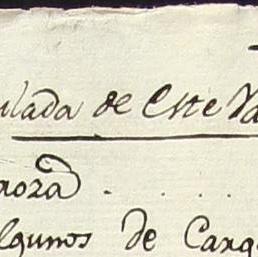 ulada de Este Va
noza . . . .
lgunos de Carg